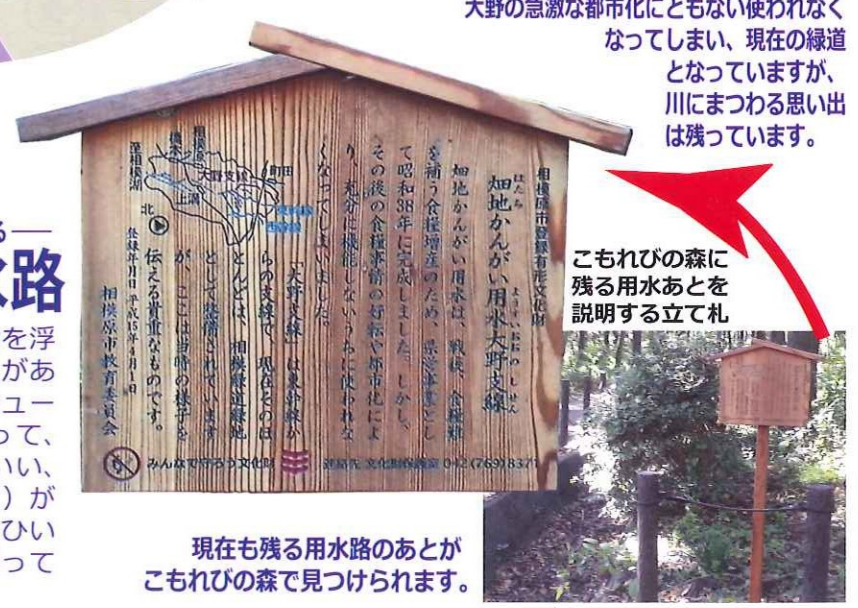 大野の急激な都市化にともない使われなく
なってしまい、現在の緑道
となっていますが、
川にまつわる思い出
は残っています。
る―
水路
を浮
があ
ュー
って、
いい、
）が
ひい
って
相模原市登録有形文化財
はたち
畑地かんがい用水大野支線
ようすいおおのしせん
畑地かんがい用水は、戦後、食糧難
を補う食糧増産のため、県営事業とし
て昭和38年に完成しました。しかし、
その後の食糧事情の好転や都市化によ
り、充分に機能しないうちに使われな
くなってしまいました。
「大野支線」は東幹線か
らの支線で、現在そのほ
とんどは、相模緑道緑地
として整備されています
が、ここは当時の様子を
伝える貴重なものです。
登録年月日 平成15年4月1日
相模原市教育委員会
町田
大野支線
相模原
橋本
上溝
至相模湖
北
東幹線
西幹線
みんなで守ろう文化財
連絡先 文化財保護室 042(769)8371
こもれびの森に
残る用水あとを
説明する立て札
現在も残る用水路のあとが
こもれびの森で見つけられます。